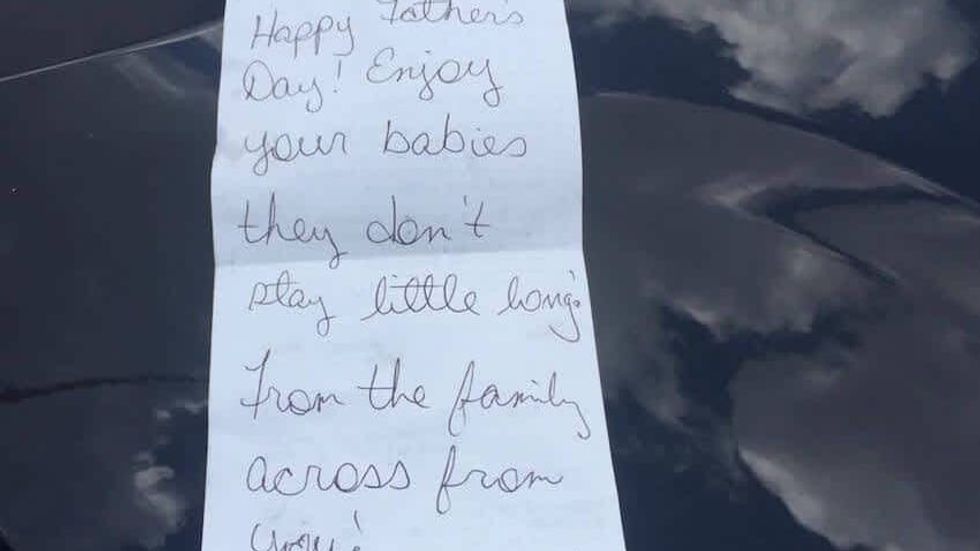 Happy Father's
Day! Enjoy
your babies
they don't
stay little long!
From the family
across from
you!